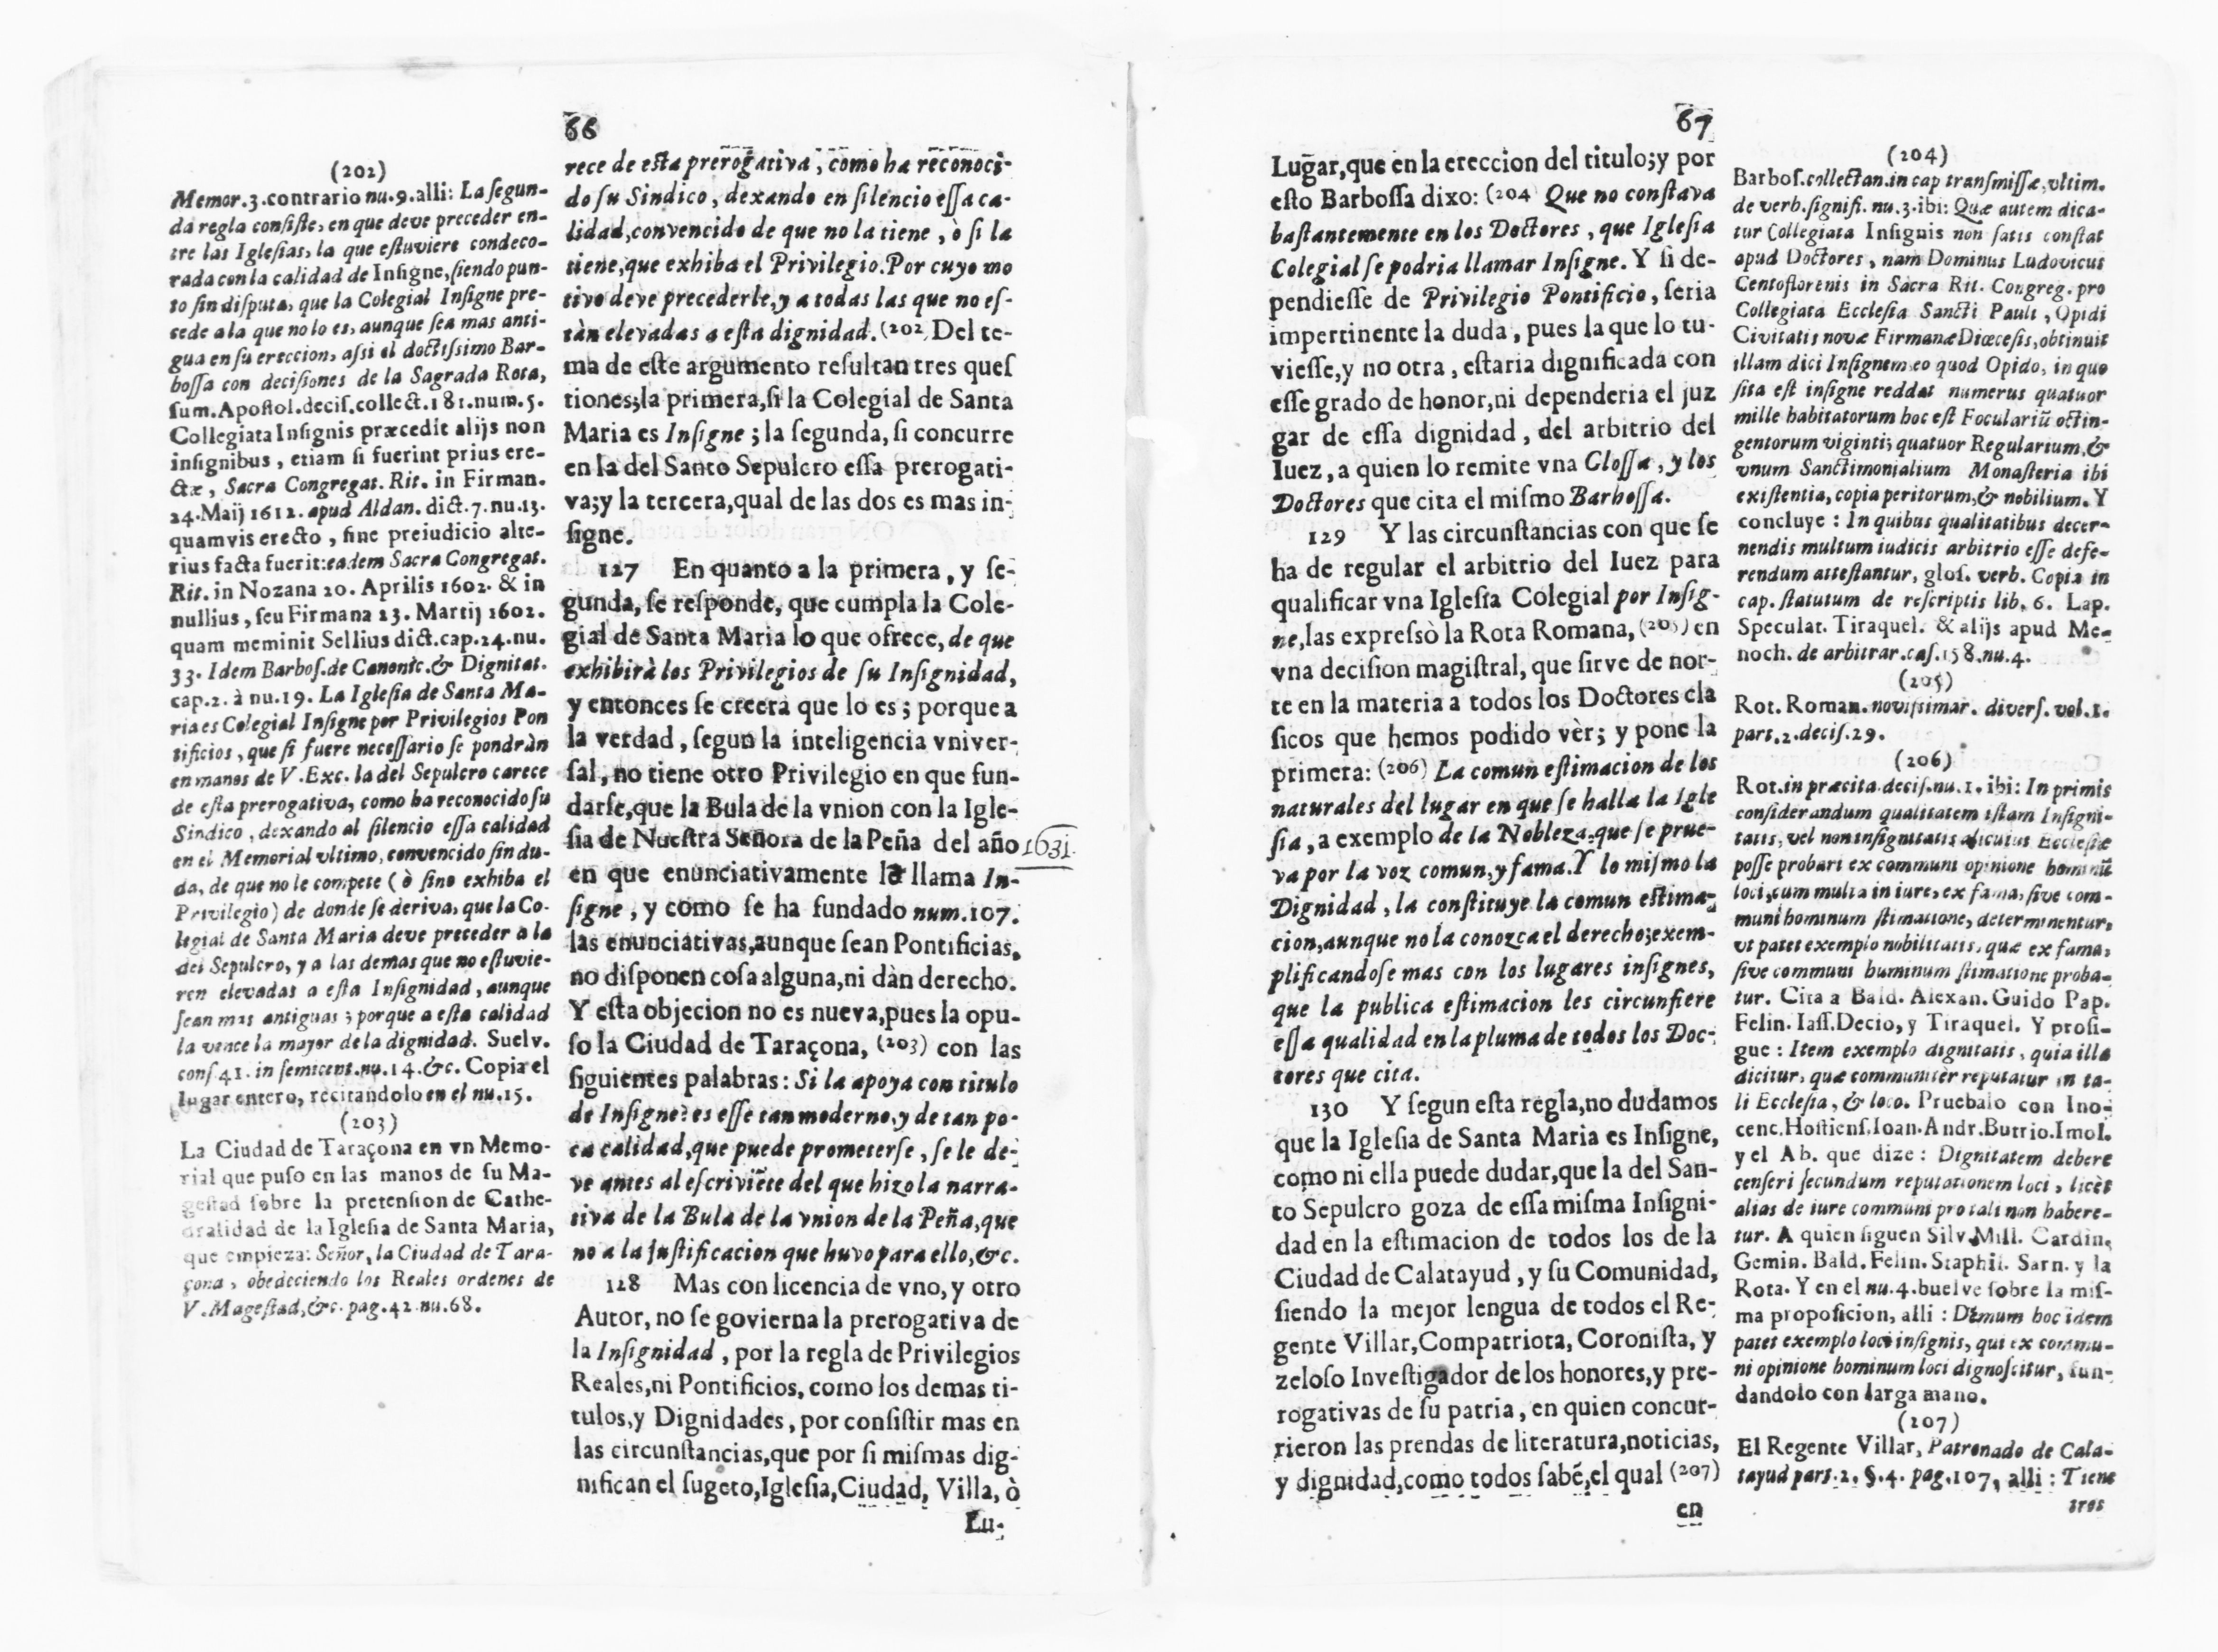 66
(202)
Memor.3.contrario nu.9.alli: La ſegun-
da regla conſiſte, en que deve preceder en-
tre las Igleſias, la que eſtuviere condeco-
rada con la calidad de Inſigne, ſiendo pun-
to ſin diſputa, que la Colegial Inſigne pre-
cede a la que no lo es, aunque ſea mas anti-
gua en ſu ereccion, aſsi el doctiſsimo Bar-
boſſa con deciſiones de la Sagrada Rota,
ſum.Apoſtol.deciſ.collect.181.num.5.
Collegiata Inſignis præcedit alijs non
inſignibus, etiam ſi fuerint prius ere-
ctæ, Sacra Congregat. Rit. in Firman.
24.Maij 1612. apud Aldan. dict.7.nu.13.
quamvis erecto, ſine preiudicio alte-
rius facta fuerit:eadem Sacra Congregat.
Rit. in Nozana 20. Aprilis 1602. & in
nullius, ſeu Firmana 23. Martij 1602.
quam meminit Sellius dict.cap.24.nu.
33. Idem Barboſ.de Canonic.& Dignitat.
cap.2. à nu.19. La Igleſia de Santa Ma-
ria es Colegial Inſigne por Privilegios Pon
tificios, que ſi fuere neceſſario ſe pondràn
en manos de V.Exc. la del Sepulcro carece
de eſta prerogativa, como ha reconocido ſu
Sindico, dexando al ſilencio eſſa calidad
en el Memorial vltimo, convencido ſin du-
da, de que no le compete (ò ſino exhiba el
Privilegio) de donde ſe deriva, que la Co-
legial de Santa Maria deve preceder a la
del Sepulcro, y a las demas que no eſtuvie-
ren elevadas a eſta Inſignidad, aunque
ſean mas antiguas; porque a eſta calidad
la vence la mayor de la dignidad. Suelv.
conſ.41. in ſemicent.nu.14.&c. Copia el
lugar entero, recitandolo en el nu.15.
(203)
La Ciudad de Taraçona en vn Memo-
rial que puſo en las manos de ſu Ma-
geſtad ſobre la pretenſion de Cathe-
dralidad de la Igleſia de Santa Maria,
que empieza: Señor, la Ciudad de Tara-
çona, obedeciendo los Reales ordenes de
V.Mageſtad,&c. pag.42.nu.68.
rece de eſta prerogativa, como ha reconoci-
do ſu Sindico, dexando en ſilencio eſſa ca-
lidad,convencido de que no la tiene, ò ſi la
tiene,que exhiba el Privilegio.Por cuyo mo
tivo deve precederle,y a todas las que no eſ-
tàn elevadas a eſta dignidad.(202 Del te-
ma de eſte argumento reſultan tres queſ
tiones;la primera,ſi la Colegial de Santa
Maria es Inſigne; la ſegunda, ſi concurre
en la del Santo Sepulcro eſſa prerogati-
va;y la tercera,qual de las dos es mas in-
ſigne.
127 En quanto a la primera, y ſe-
gunda, ſe reſponde, que cumpla la Cole-
gial de Santa Maria lo que ofrece, de que
exhibirà los Privilegios de ſu Inſignidad,
y entonces ſe creerà que lo es; porque a
la verdad, ſegun la inteligencia vniver-
ſal, no tiene otro Privilegio en que fun-
darſe,que la Bula de la vnion con la Igle-
ſia de Nueſtra Señora de la Peña del año 1631.
en que enunciativamente la llama In-
ſigne, y como ſe ha fundado num.107.
las enunciativas,aunque ſean Pontificias,
no diſponen coſa alguna,ni dàn derecho.
Y eſta objecion no es nueva,pues la opu-
ſo la Ciudad de Taraçona, (203) con las
ſiguientes palabras: Si la apoya con titulo
de Inſigne? es eſſe tan moderno,y de tan po-
ca calidad,que puede prometerſe, ſe le de-
ve antes al eſcriviẽte del que hizo la narra-
tiva de la Bula de la vnion de la Peña,que
no a la juſtificacion que huvo para ello,&c.
128 Mas con licencia de vno, y otro
Autor, no ſe govierna la prerogativa de
la Inſignidad, por la regla de Privilegios
Reales,ni Pontificios, como los demas ti-
tulos,y Dignidades, por conſiſtir mas en
las circunſtancias,que por ſi miſmas dig-
nifican el ſugeto,Igleſia,Ciudad, Villa, ò
Lu-
67
Lugar,que en la ereccion del titulo;y por
eſto Barboſſa dixo: (204 Que no conſtava
baſtantemente en los Doctores, que Igleſia
Colegial ſe podria llamar Inſigne. Y ſi de-
pendieſſe de Privilegio Pontificio, ſeria
impertinente la duda, pues la que lo tu-
vieſſe,y no otra, eſtaria dignificada con
eſſe grado de honor,ni dependeria el juz
gar de eſſa dignidad, del arbitrio del
Iuez, a quien lo remite vna Gloſſa, y los
Doctores que cita el miſmo Barboſſa.
129 Y las circunſtancias con que ſe
ha de regular el arbitrio del Iuez para
qualificar vna Igleſia Colegial por Inſig-
ne,las expreſsò la Rota Romana, (205) en
vna deciſion magiſtral, que ſirve de nor-
te en la materia a todos los Doctores cla
ſicos que hemos podido vèr; y pone la
primera: (206) La comun eſtimacion de los
naturales del lugar en que ſe halla la Igle
ſia, a exemplo de la Nobleza,que ſe prue-
va por la voz comun,y fama.Y lo miſmo la
Dignidad, la conſtituye la comun eſtima-
cion,aunque no la conozca el derecho;exem-
plificandoſe mas con los lugares inſignes,
que la publica eſtimacion les circunfiere
eſſa qualidad en la pluma de todos los Doc-
tores que cita.
130 Y ſegun eſta regla,no dudamos
que la Igleſia de Santa Maria es Inſigne,
como ni ella puede dudar,que la del San-
to Sepulcro goza de eſſa miſma Inſigni-
dad en la eſtimacion de todos los de la
Ciudad de Calatayud, y ſu Comunidad,
ſiendo la mejor lengua de todos el Re-
gente Villar,Compatriota, Coroniſta, y
zeloſo Inveſtigador de los honores,y pre-
rogativas de ſu patria, en quien concur-
rieron las prendas de literatura,noticias,
y dignidad,como todos ſabẽ,el qual (207)
en
(204)
Barboſ.collectan.in cap tranſmiſſæ,vltim.
de verb.ſignifi. nu.3.ibi: Quæ autem dica-
tur Collegiata Inſignis non ſatis conſtat
apud Doctores, nam Dominus Ludovicus
Centoflorenis in Sacra Rit. Congreg. pro
Collegiata Eccleſia Sancti Pauli, Opidi
Civitatis novæ Firmanæ Diœceſis,obtinuit
illam dici Inſignem eo quod Opido, in quo
ſita eſt inſigne reddat numerus quatuor
mille habitatorum hoc eſt Foculariũ octin-
gentorum viginti; quatuor Regularium,&
vnum Sanctimonialium Monaſteria ibi
exiſtentia, copia peritorum,& nobilium. Y
concluye: In quibus qualitatibus decer-
nendis multum iudicis arbitrio eſſe defe-
rendum atteſtantur, gloſ. verb. Copia in
cap. ſtatutum de reſcriptis lib. 6. Lap.
Speculat. Tiraquel. & alijs apud Me-
noch. de arbitrar.caſ.158.nu.4.
(205)
Rot. Roman. noviſsimar. diverſ. vol.1.
part.2.deciſ.29.
(206)
Rot.in præcita.deciſ.nu.1. ibi: In primis
conſiderandum qualitatem iſtam Inſigni-
tatis, vel non inſignitatis alicuius Eccleſiæ
poſſe probari ex communi opinione hominũ
loci,cum multa in iure, ex fama, ſive com-
muni hominum ſtimatione, determinentur,
vt patet exemplo nobilitatis, quæ ex fama,
ſive communi huminum ſtimatione proba-
tur. Cita a Bald. Alexan. Guido Pap.
Felin. Iaſſ.Decio, y Tiraquel. Y proſi-
gue: Item exemplo dignitatis, quia illa
dicitur, quæ communitèr reputatur in ta-
li Eccleſia, & loco. Pruebalo con Ino-
cenc.Hoſtienſ.Ioan.Andr.Butrio.Imol.
y el Ab. que dize: Dignitatem debere
cenſeri ſecundum reputationem loci, licèt
alias de iure communi pro tali non habere-
tur. A quien ſiguen Silv.Mill. Cardin.
Gemin. Bald. Felin. Staphil. Sarn. y la
Rota. Y en el nu.4.buelve ſobre la miſ-
ma propoſicion, alli: Demum hoc idem
patet exemplo loci inſignis, qui ex commu-
ni opinione hominum loci dignoſcitur, fun-
dandolo con larga mano.
(207)
El Regente Villar, Patronado de Cala-
tayud part.2. §.4. pag.107, alli: Tiene
tres